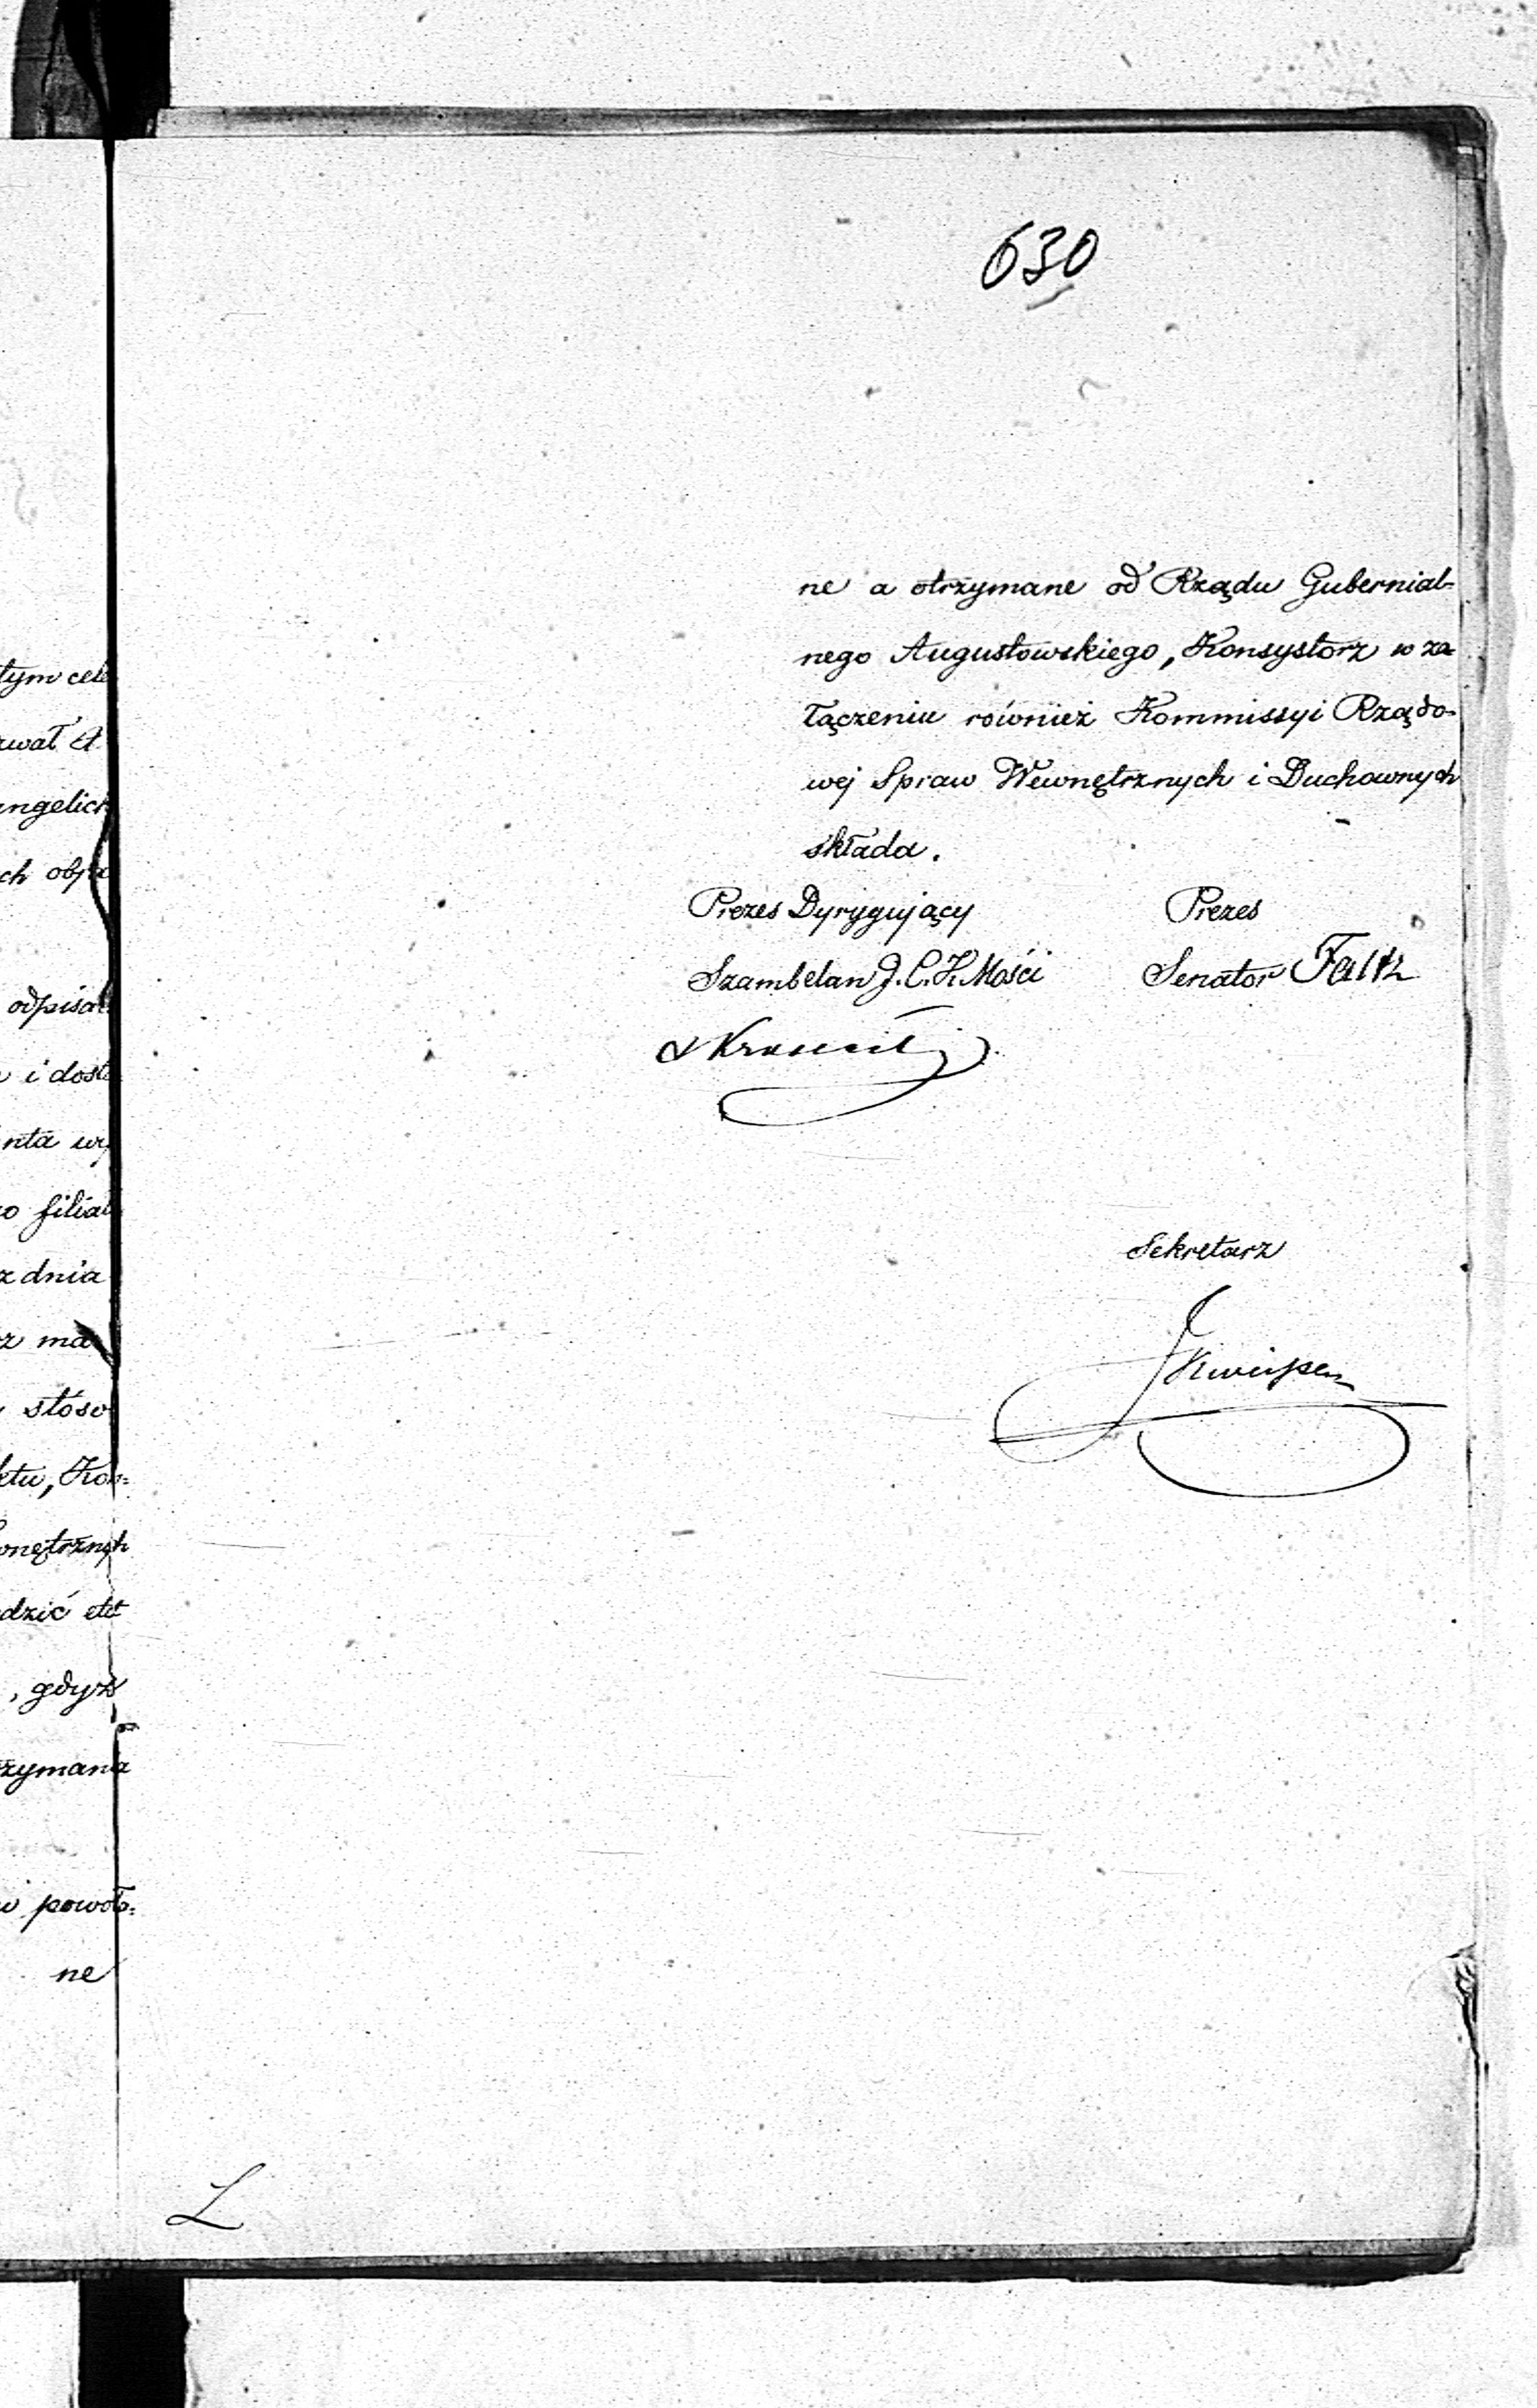 630
tym cel
wał A
angelick
ch obja
odpisa
i dost
nta wy
o filial
z dnia
rz ma
stóso
ktu, Kon=
wnętrznych
dzić etat
, gdyż
zymania
w powoła=
ne
ne a otrzymane od Rządu Gubernial-
nego Augustowskiego, Konsystorz w za
łączeniu również Kommissyi Rządo-
wej Spraw Wewnętrznych i Duchownych
składa.
Prezes Dyrygujący Prezes
Szambelan J. C. K. Mości Senator Faltz
Sekretarz
L